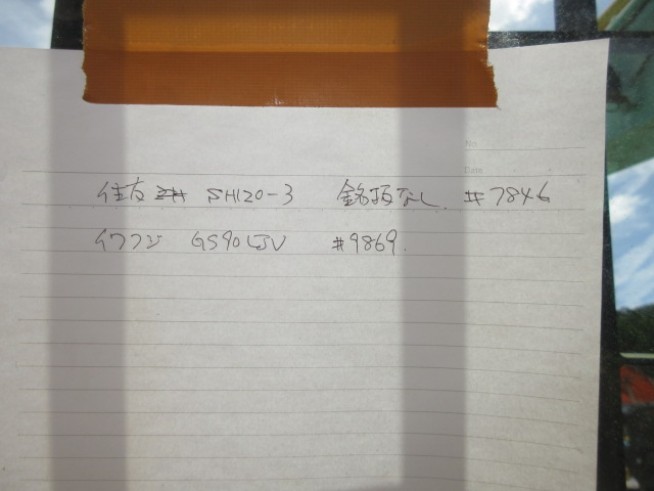 No.
Date
住友 SH120-3 銘板なし. #7846
イワフジ GS90LJV #9869.